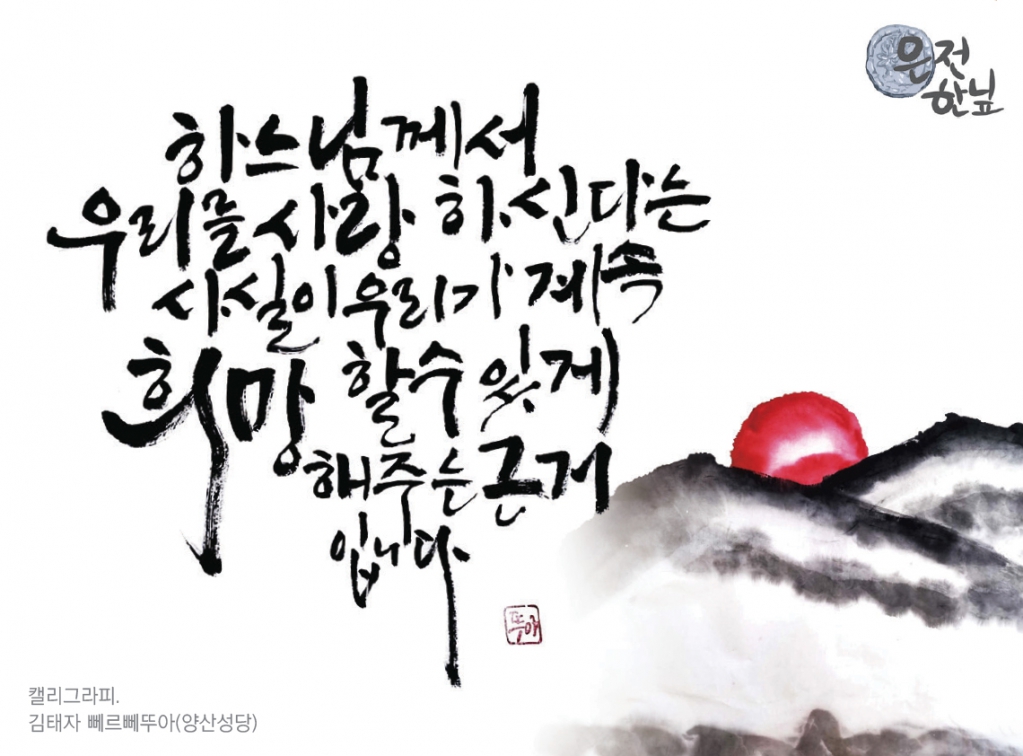 은전
한닢
하느님께서
우리를 사랑 하신다는
사실이 우리가 계속
희망 할 수 있게
해주는 근거
입니다
뚜아
캘리그라피.
김태자 뻬르뻬뚜아(양산성당)